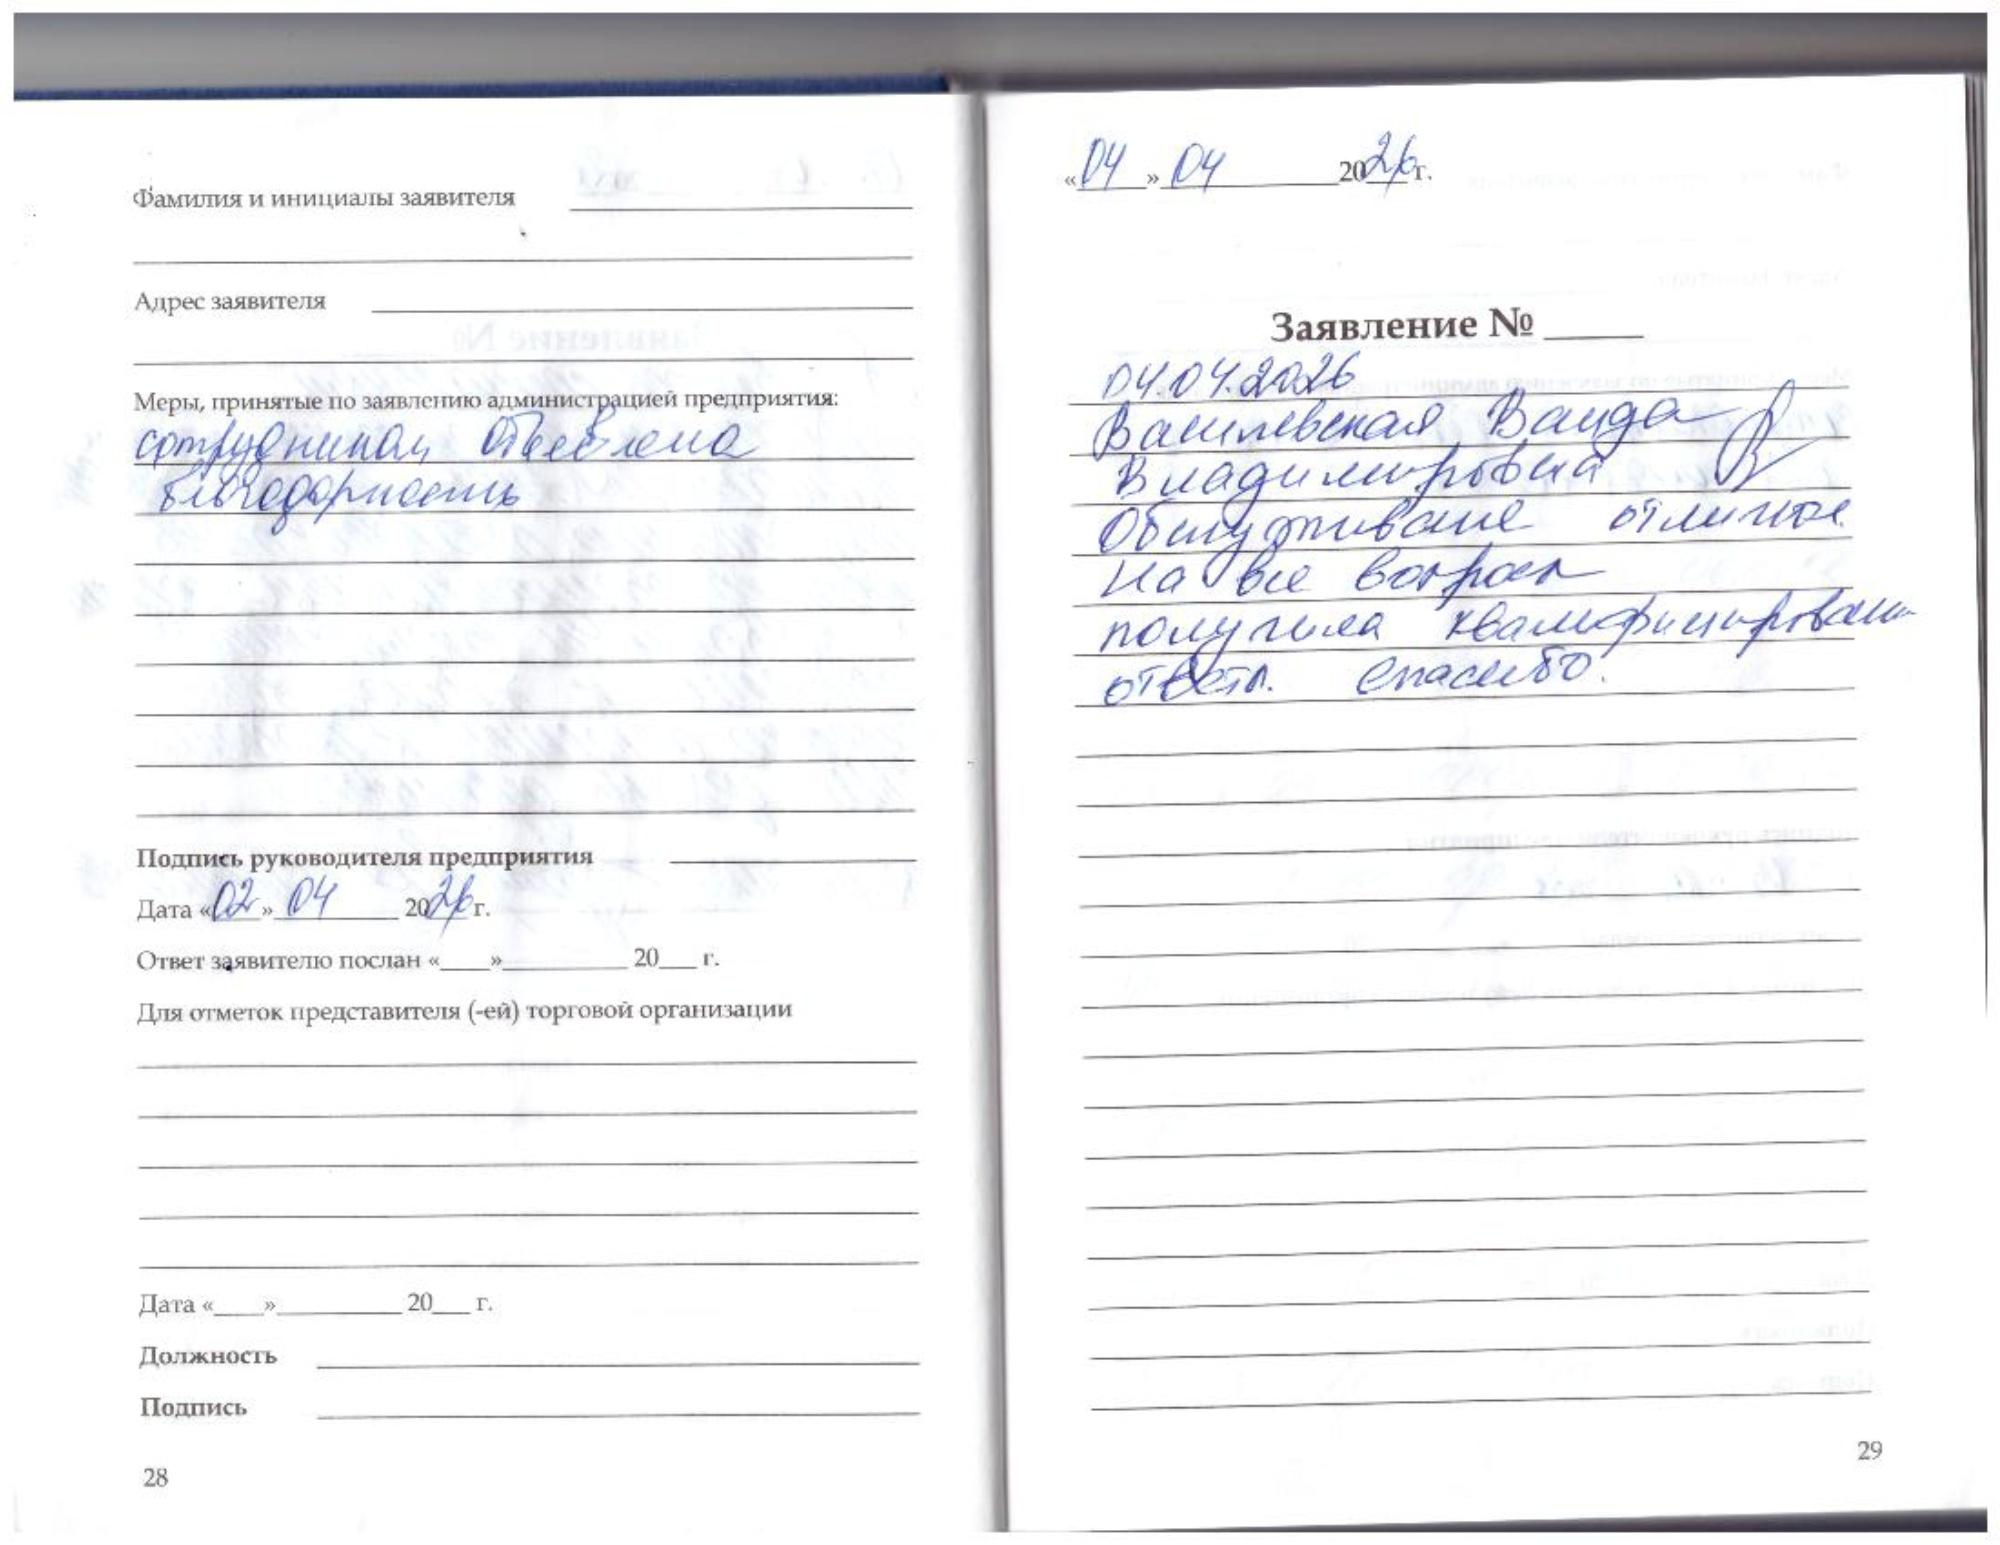 Фамилия и инициалы заявителя
Адрес заявителя
Меры, принятые по заявлению администрацией предприятия:
сотрудникам объявлена
благодарность
Подпись руководителя предприятия
Дата «02» 04 2026 г.
Ответ заявителю послан «____»__________ 20___ г.
Для отметок представителя (-ей) торговой организации
Дата «____»__________ 20___ г.
Должность
Подпись
28
«04» 04 2026 г.
Заявление № _____
04.04.2026
Василевская Ванда
Владимировна
Обслуживание отличное.
На все вопросы
получила квалифицирован
ответы. Спасибо.
29